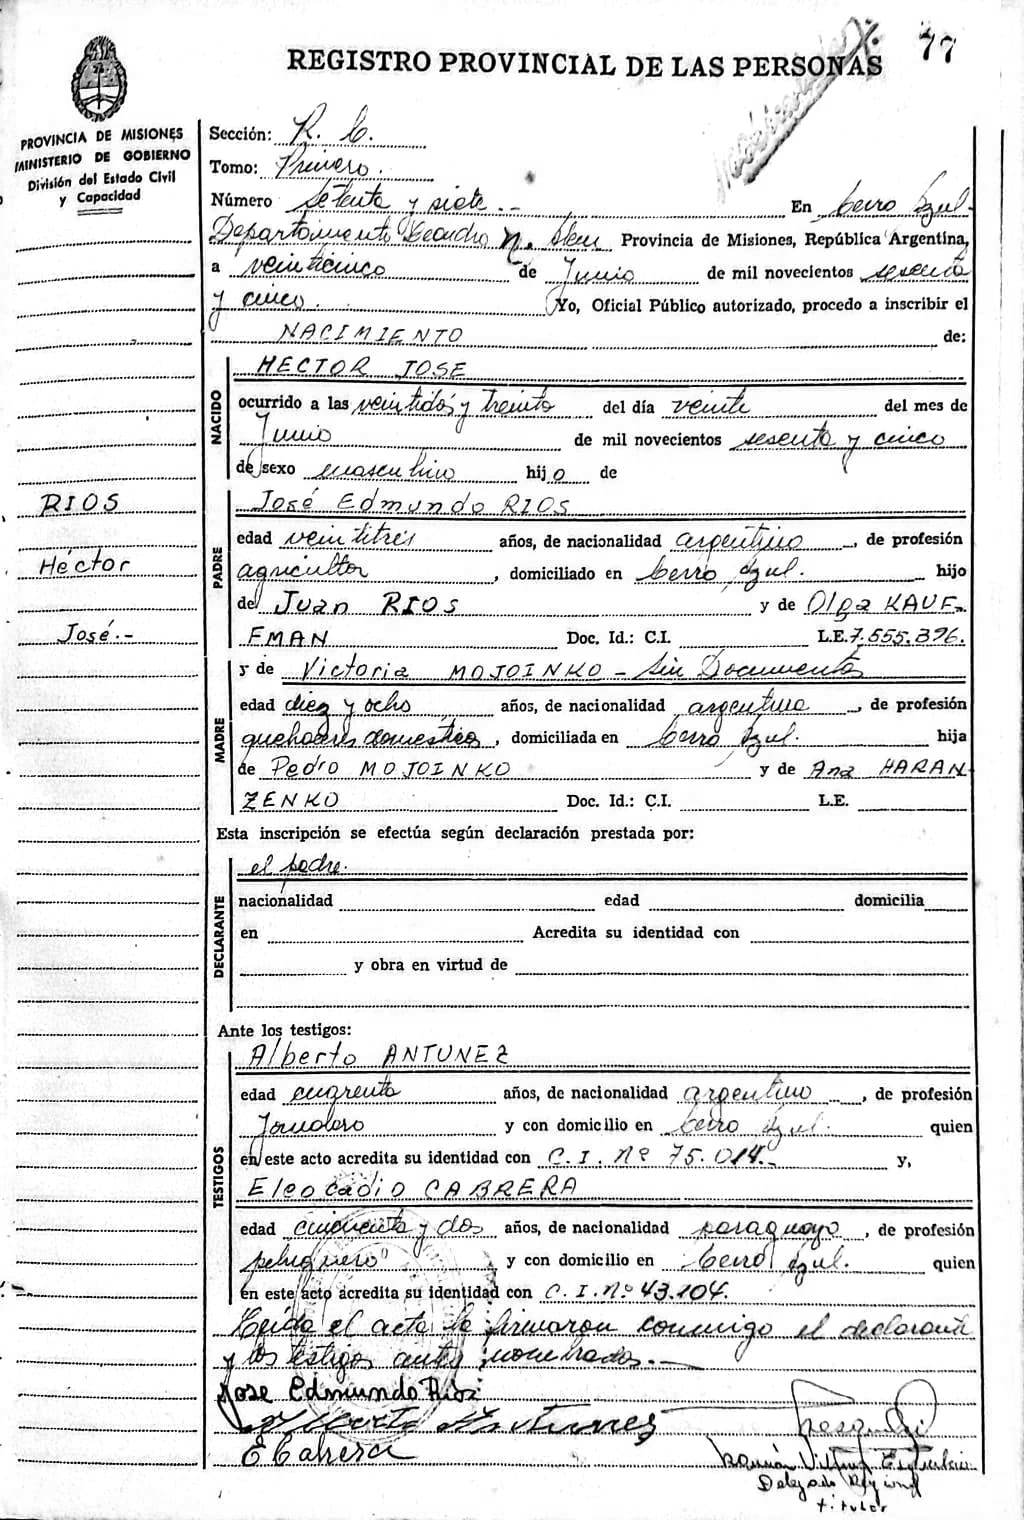 77
REGISTRO PROVINCIAL DE LAS PERSONAS
PROVINCIA DE MISIONES
MINISTERIO DE GOBIERNO
División del Estado Civil
y Capacidad
Sección: R. C.
Tomo: Primero.
Número setenta y siete.- En Cerro Azul.
Departamento Leandro N. Alem Provincia de Misiones, República Argentina,
a veinticinco de Junio de mil novecientos sesenta
y cinco. Yo, Oficial Público autorizado, procedo a inscribir el
NACIMIENTO de:
NACIDO
HECTOR JOSE
ocurrido a las veintidós y treinta del día veinte del mes de
Junio de mil novecientos sesenta y cinco
de sexo masculino hijo de
RIOS
Héctor
José.-
PADRE
José Edmundo RIOS
edad veintitrés años, de nacionalidad argentino, de profesión
agricultor, domiciliado en Cerro Azul. hijo
de Juan RIOS y de Olga KAUF-
FMAN Doc. Id.: C.I. L.E. 7.555.396.
MADRE
y de Victoria MOJOINKO - Sin Documentos
edad diez y ocho años, de nacionalidad argentina, de profesión
quehaceres domésticos, domiciliada en Cerro Azul. hija
de Pedro MOJOINKO y de Ana HARAN
ZENKO Doc. Id.: C.I. L.E.
Esta inscripción se efectúa según declaración prestada por:
DECLARANTE
el padre.
nacionalidad edad domicilia
en Acredita su identidad con
y obra en virtud de
Ante los testigos:
TESTIGOS
Alberto ANTUNEZ
edad cuarenta años, de nacionalidad argentino, de profesión
Jornalero y con domicilio en Cerro Azul. quien
en este acto acredita su identidad con C.I. Nº 75.014.- y,
Eleocadio CABRERA
edad cincuenta y dos años, de nacionalidad paraguayo, de profesión
peluquero" y con domicilio en Cerro Azul. quien
en este acto acredita su identidad con C.I. Nº 43.104.
Leída el acta la firmaron conmigo el declarante
y los testigos antes nombrados.-
Jose Edmundo Rios
Alberto Antunez
E Cabrera
Delegado Regional
titular